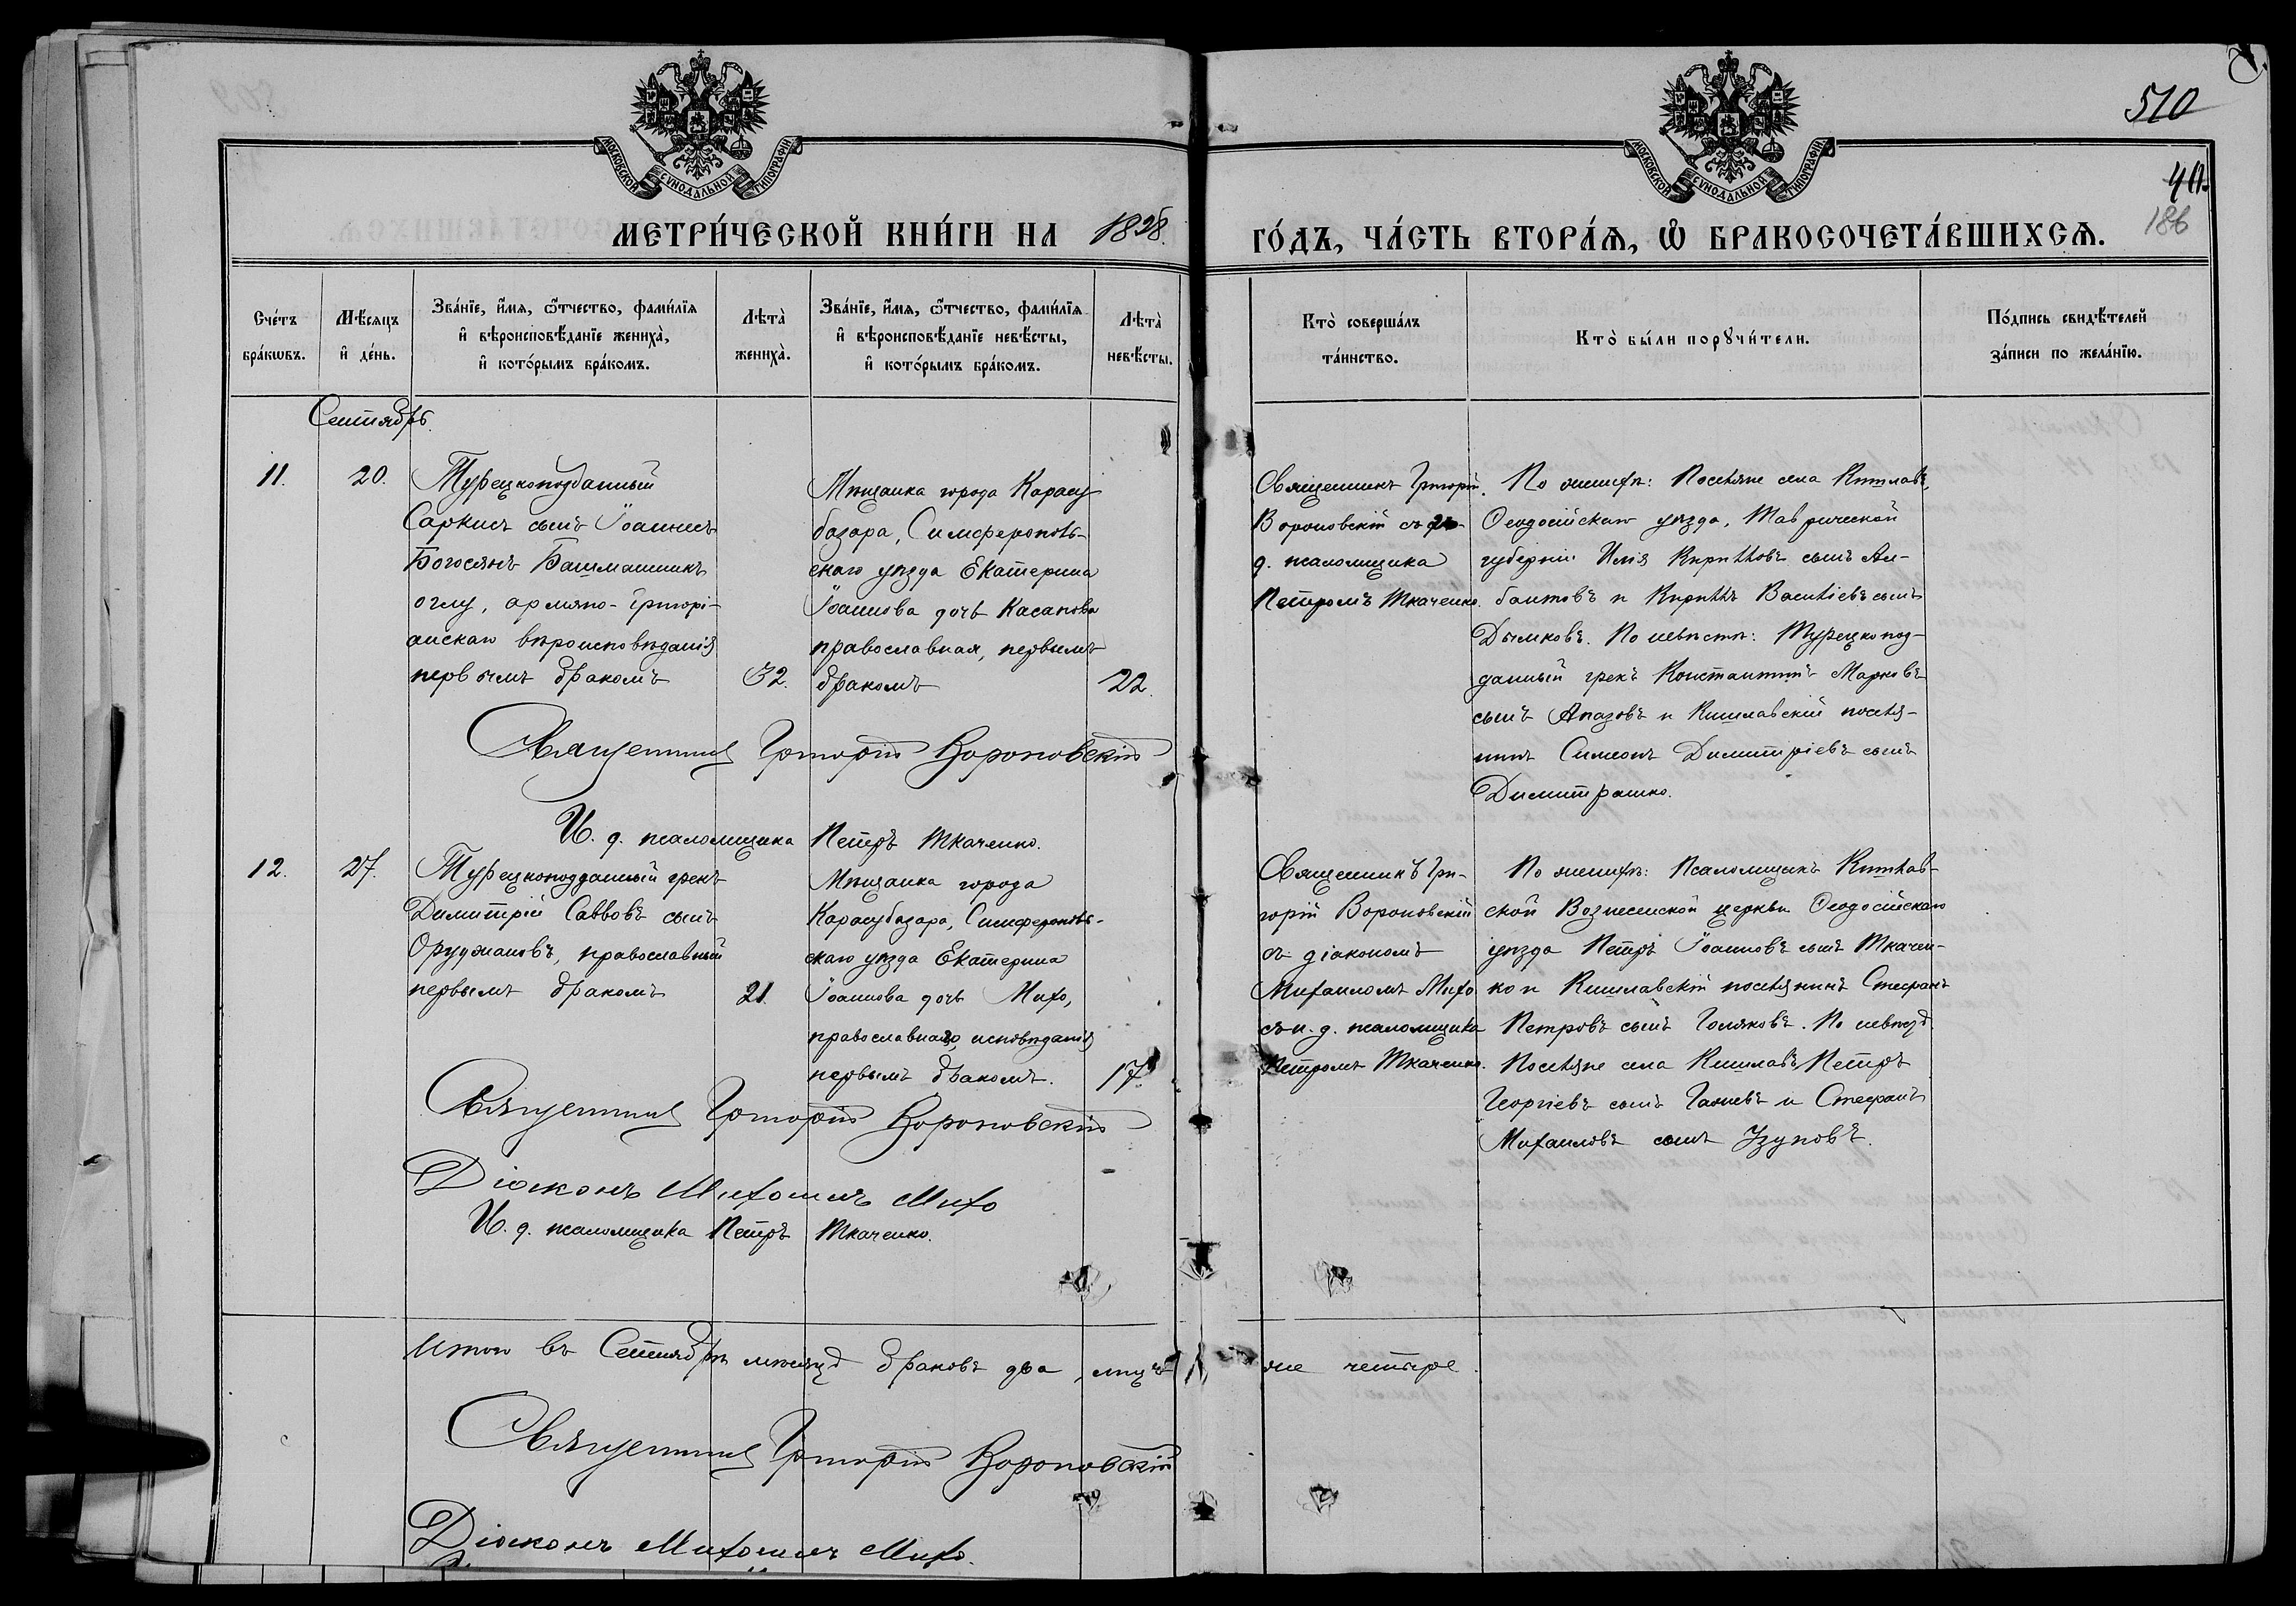 510
40.
186
МОСКОВСКОЙ СѴНОДАЛЬНОЙ ТИПОГРАФІИ
МОСКОВСКОЙ СѴНОДАЛЬНОЙ ТИПОГРАФІИ
МЕТРИ́ЧЕСКОЙ КНИ́ГИ НА 1898.
ГО́ДЪ, ЧА́СТЬ ВТОРА́Ѧ, Ѡ БРАКОСОЧЕТА́ВШИХСѦ.
Сче́тъ бра́кѡвъ.
Мѣ́сяцъ и҆ де́нь.
Зва́нїе, и҆́мя, ѻ҆́тчество, фами́лїя и҆ вѣроисповѣ́данїе жениха̀, и҆ кото́рымъ бра́комъ.
Лѣта̀ жениха̀.
Зва́нїе, и҆́мя, ѻ҆́тчество, фами́лїя и҆ вѣроисповѣ́данїе невѣ́сты, и҆ кото́рымъ бра́комъ.
Лѣта̀ невѣ́сты.
Кто̀ соверша́лъ та́инство.
Кто̀ бы́ли порꙋчи́тели.
По́дпись свидѣ́телей за́писи по жела́нїю.
Сентябрь.
11.
20.
Турецкоподданный
Саркисъ сынъ Іоаннисъ
Богосянъ Башмашникъ
оглу, армяно-григорі-
анскаго вѣроисповѣданія
первымъ бракомъ
32.
Мѣщанка города Карасу-
базара, Симферополь-
скаго уѣзда Екатерина
Іоаннова дочь Касапова
православная, первымъ
бракомъ
22.
Священникъ Григорій
Вороновскій съ
д. псаломщика
Петромъ Ткаченко.
По женихѣ: Поселяне села Кишлавъ,
Ѳеодосійскаго уѣзда, Таврической
губерніи Илія Кирилловъ сынъ Ал-
баитовъ и Кириллъ Васильевъ сынъ
Дымковъ. По невѣстѣ: Турецкопод-
данный грекъ Константинъ Марковъ
сынъ Апазовъ и Кишлавскій поселя-
нинъ Симеонъ Димитріевъ сынъ
Димитрашко.
Священникъ Григорій Вороновскій
И. д. псаломщика Петръ Ткаченко.
12.
27.
Турецкоподданный грекъ
Димитрій Саввовъ сынъ
Оруджановъ, православный
первымъ бракомъ
21.
Мѣщанка города
Карасубазара, Симферополь-
скаго уѣзда Екатерина
Іоаннова дочь Михо,
православнаго исповѣданія
первымъ бракомъ.
17.
Священникъ Гри-
горій Вороновскій
съ діакономъ
Михаиломъ Михо
съ и. д. псаломщика
Петромъ Ткаченко.
По женихѣ: Псаломщикъ Кишлав-
ской Вознесенской церкви Ѳеодосійскаго
уѣзда Петръ Іоанновъ сынъ Ткачен-
ко и Кишлавскій поселянинъ Стефанъ
Петровъ сынъ Голяковъ. По невѣстѣ
Поселяне села Кишлавъ, Петръ
Георгіевъ сынъ Ганчевъ и Стефанъ
Михаиловъ сынъ Узуновъ.
Священникъ Григорій Вороновскій
Діаконъ Михаилъ Михо
И. д. псаломщика Петръ Ткаченко.
Итого въ Сентябрѣ мѣсяцѣ браковъ два, лицъ же четыре.
Священникъ Григорій Вороновскій
Діаконъ Михаилъ Михо.